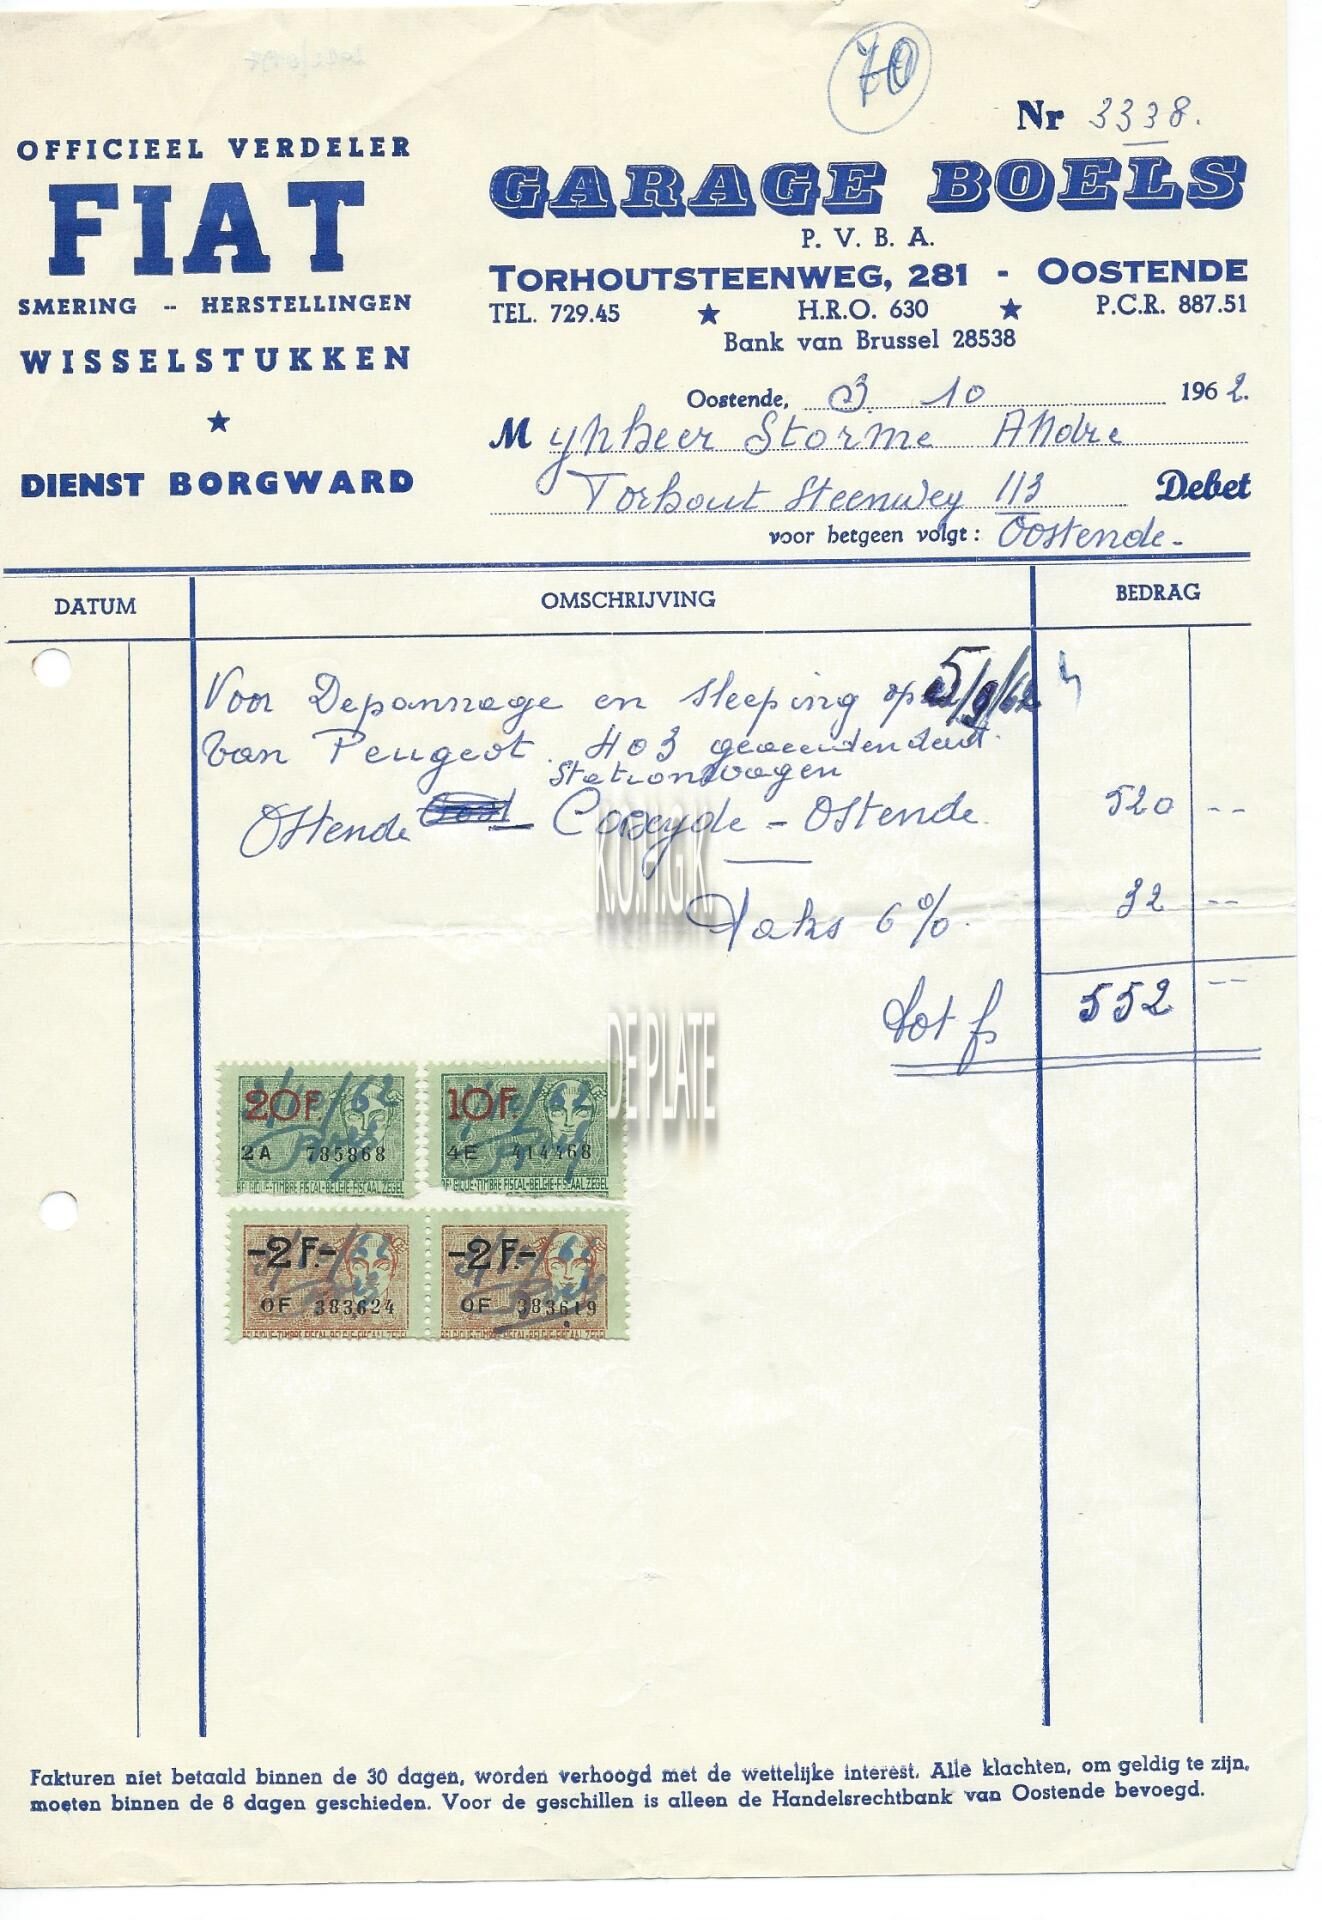 70
Nr 3338.
OFFICIEEL VERDELER
FIAT
SMERING -- HERSTELLINGEN
WISSELSTUKKEN
DIENST BORGWARD
GARAGE BOELS
P. V. B. A.
TORHOUTSTEENWEG, 281 - OOSTENDE
TEL. 729.45 ★ H.R.O. 630 ★ P.C.R. 887.51
Bank van Brussel 28538
Oostende, 3 10 1962.
Mynheer Storme Andre
Torhout Steenweg 113 Debet
voor hetgeen volgt: Oostende-
DATUM OMSCHRIJVING BEDRAG
Voor Depannage en sleeping op 5/9/62
van Peugeot 403
Stationwagen
Ostende Coxyde - Ostende. 520 --
Taks 6%. 32 --
Tot fs 552 --
K.O.H.G.K.
DE PLATE
20F. 10F.
2A 785868 4E 414468
BELGIQUE-TIMBRE FISCAL-BELGIE-FISCAAL ZEGEL BELGIQUE-TIMBRE FISCAL-BELGIE-FISCAAL ZEGEL
-2F.- -2F.-
OF 383624 OF 383619
BELGIQUE-TIMBRE FISCAL-BELGIE-FISCAAL ZEGEL BELGIQUE-TIMBRE FISCAL-BELGIE-FISCAAL ZEGEL
Fakturen niet betaald binnen de 30 dagen, worden verhoogd met de wettelijke interest. Alle klachten, om geldig te zijn,
moeten binnen de 8 dagen geschieden. Voor de geschillen is alleen de Handelsrechtbank van Oostende bevoegd.